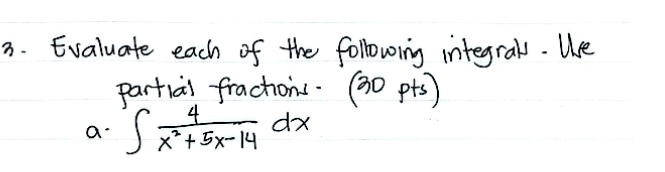 3. Evaluate each of the following integrals. Use
partial fractions. (30 pts)
a. ∫ 4/(x²+5x-14) dx